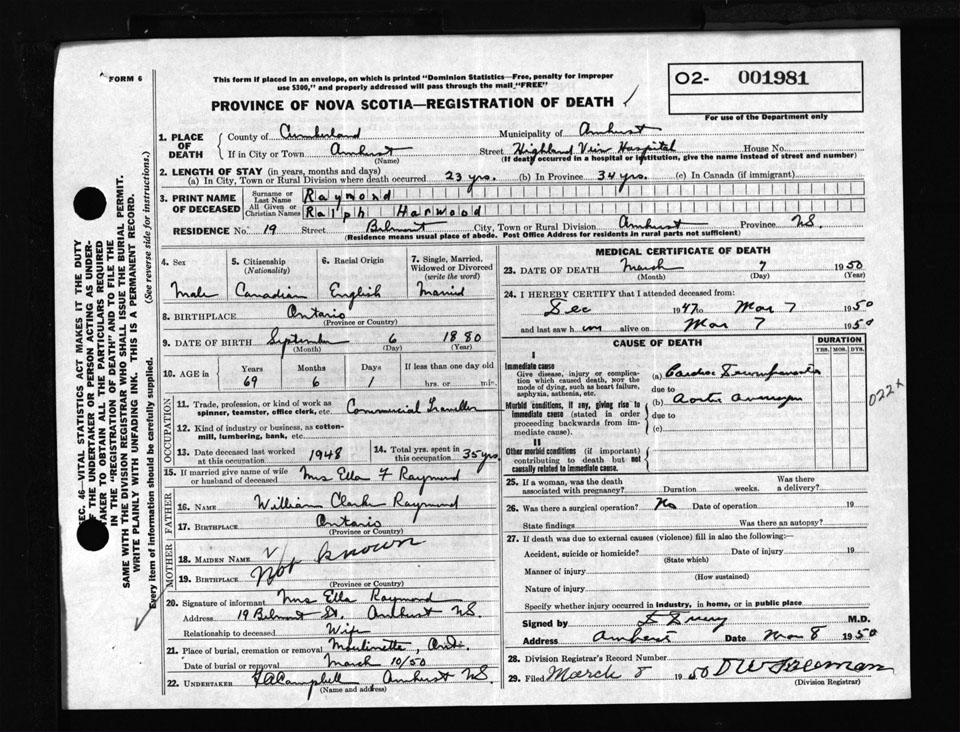 FORM 6
This form if placed in an envelope, on which is printed "Dominion Statistics—Free, penalty for improper
use $300," and properly addressed will pass through the mail "FREE"
PROVINCE OF NOVA SCOTIA—REGISTRATION OF DEATH
02- 001981
For use of the Department only
1. PLACE OF DEATH
County of Cumberland Municipality of Amherst
If in City or Town Amherst Street Highland View Hospital House No.
(Name) (If death occurred in a hospital or institution, give the name instead of street and number)
2. LENGTH OF STAY (in years, months and days)
(a) In City, Town or Rural Division where death occurred 23 yrs. (b) In Province 34 yrs. (c) In Canada (if immigrant)
3. PRINT NAME OF DECEASED
Surname or Last Name Raymond
All Given or Christian Names Ralph Harwood
RESIDENCE No. 19 Street Belmont City, Town or Rural Division Amherst Province N.S.
(Residence means usual place of abode. Post Office Address for residents in rural parts not sufficient)
4. Sex 5. Citizenship (Nationality) 6. Racial Origin 7. Single, Married, Widowed or Divorced (write the word)
Male Canadian English Married
8. BIRTHPLACE Ontario
(Province or Country)
9. DATE OF BIRTH September 6 1880
(Month) (Day) (Year)
10. AGE in Years Months Days If less than one day old
69 6 1 hrs. or min.
OCCUPATION
11. Trade, profession, or kind of work as spinner, teamster, office clerk, etc. Commercial Traveller
12. Kind of industry or business, as cotton-mill, lumbering, bank, etc.
13. Date deceased last worked at this occupation 1948
14. Total yrs. spent in this occupation 35 yrs.
15. If married give name of wife or husband of deceased Mrs Ella F Raymond
FATHER
16. NAME William Clark Raymond
17. BIRTHPLACE Ontario
(Province or Country)
MOTHER
18. MAIDEN NAME
19. BIRTHPLACE Not known
(Province or Country)
20. Signature of informant Mrs Ella Raymond
Address 19 Belmont St. Amherst N.S.
Relationship to deceased Wife
21. Place of burial, cremation or removal Moulinette, Ont.
Date of burial or removal March 10/50
22. UNDERTAKER Campbell, Amherst N.S.
(Name and address)
MEDICAL CERTIFICATE OF DEATH
23. DATE OF DEATH March 7 1950
(Month) (Day) (Year)
24. I HEREBY CERTIFY that I attended deceased from:
Dec 1947 to Mar 7 1950
and last saw him alive on Mar 7 1950
CAUSE OF DEATH
DURATION
YRS. MOS. DYS.
I
Immediate cause
Give disease, injury or complication which caused death, NOT the mode of dying, such as heart failure, asphyxia, asthenia, etc.
(a) Cardiac
due to
Morbid conditions, if any, giving rise to immediate cause (stated in order proceeding backwards from immediate cause).
(b) Aortic Aneurysm
due to
(c)
022x
II
Other morbid conditions (if important) contributing to death but not causally related to immediate cause.
25. If a woman, was the death associated with pregnancy? Duration weeks. Was there a delivery?
26. Was there a surgical operation? No Date of operation 19
State findings Was there an autopsy?
27. If death was due to external causes (violence) fill in also the following:—
Accident, suicide or homicide? Date of injury 19
(State which)
Manner of injury
(How sustained)
Nature of injury
Specify whether injury occurred in industry, in home, or in public place
Signed by M.D.
Address Amherst Date Mar 8 1950
28. Division Registrar's Record Number
29. Filed March 8 1950
(Division Registrar)
SEC. 46—VITAL STATISTICS ACT MAKES IT THE DUTY
OF THE UNDERTAKER OR PERSON ACTING AS UNDER-
TAKER TO OBTAIN ALL THE PARTICULARS REQUIRED
IN THE "REGISTRATION OF DEATH" AND TO FILE THE
SAME WITH THE DIVISION REGISTRAR WHO SHALL ISSUE THE BURIAL PERMIT.
WRITE PLAINLY WITH UNFADING INK. THIS IS A PERMANENT RECORD.
Every item of information should be carefully supplied. (See reverse side for instructions.)